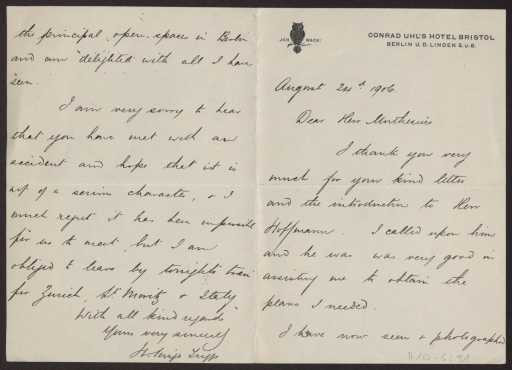 JCH WACH!
CONRAD UHL'S HOTEL BRISTOL
BERLIN U. D. LINDEN 5 U. 6.
August 24th 1906.
Dear Herr Muthesius
I thank you very
much for your kind letter
and the introduction to Herr
Hoffmann. I called upon him
and he was was very good in
assisting me to obtain the
plans I needed.
I have now seen & photographed
the principal open spaces in Berlin
and am delighted with all I have
seen.
I am very sorry to hear
that you have met with an
accident and hope that it is
not of a serious character, & I
much regret it has been impossible
for us to meet, but I am
obliged to leave by tonight's train
for Zurich, St Moritz & Italy
With all kind regards
Yours very sincerely
H Inigo Triggs